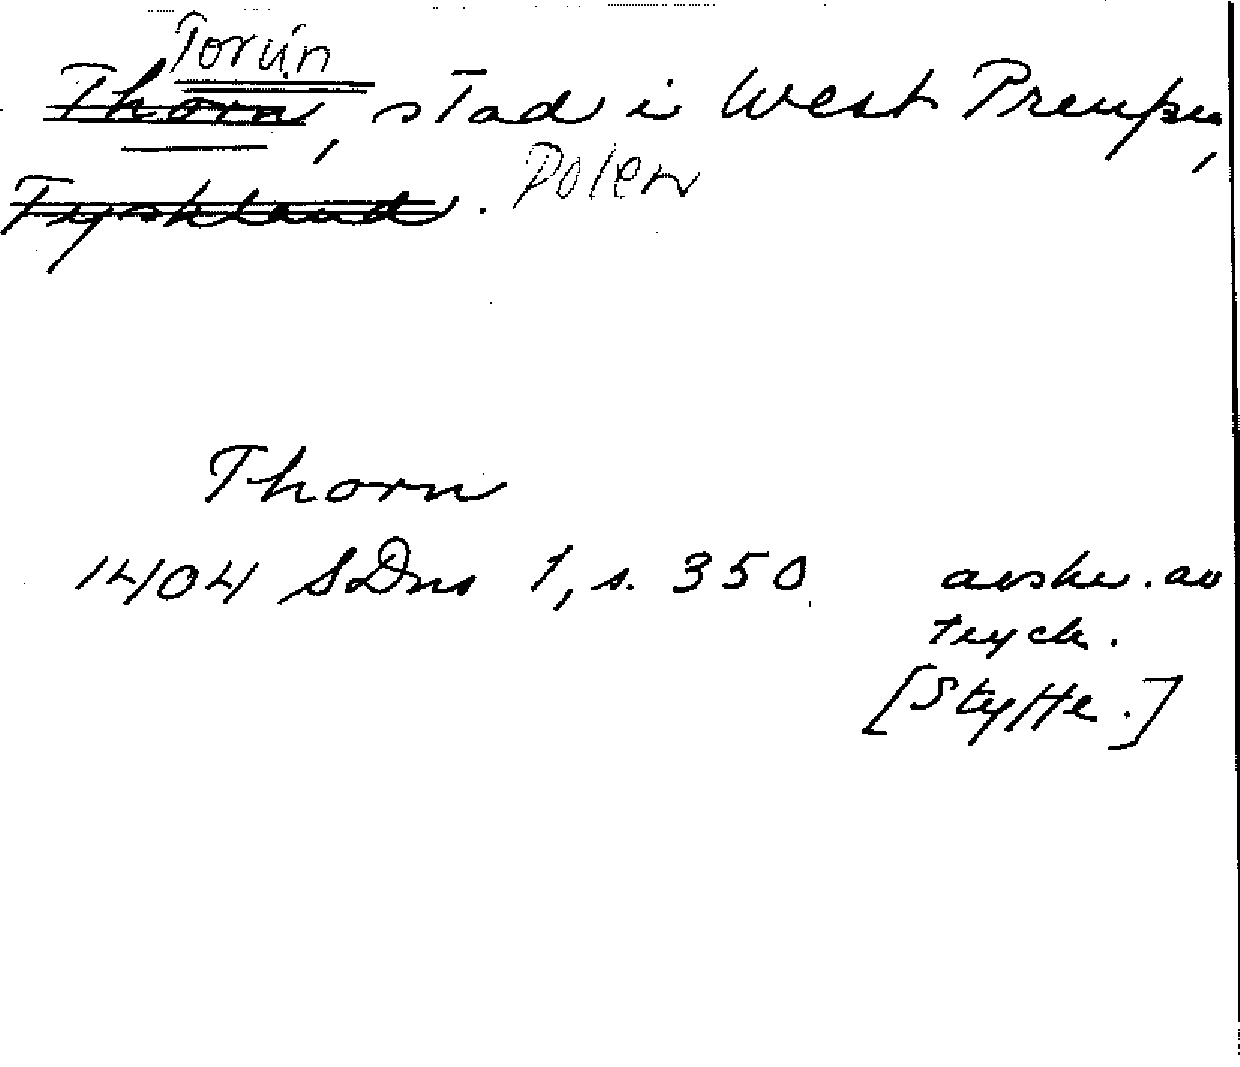 Torún
Thorn, stad i West Preußen,
Tyskland. Polen
Thorn
1404 SDns 1, s. 350 avskr. av
tryck.
[Styffe.]